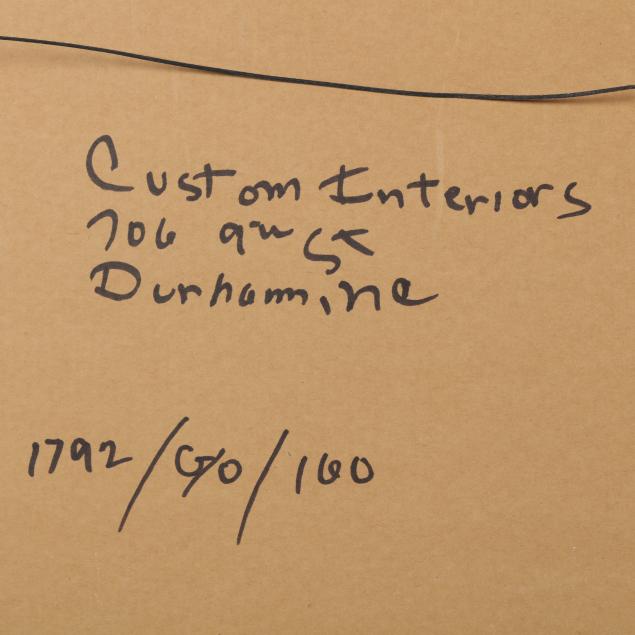 Custom Interiors
706 9th St
Durham, NC
1792/G/0/160